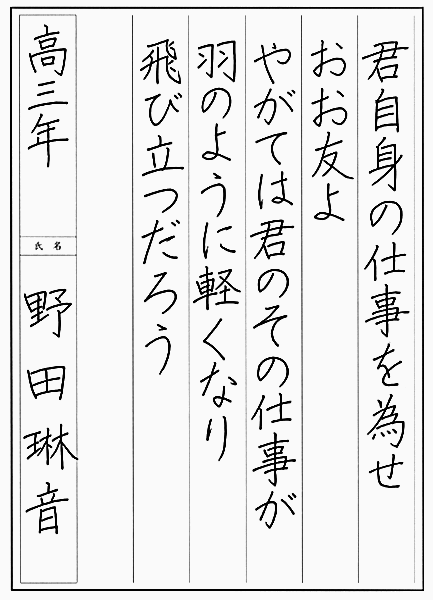 君自身の仕事を為せ
おお友よ
やがては君のその仕事が
羽のように軽くなり
飛び立つだろう
高三年
氏名
野田琳音